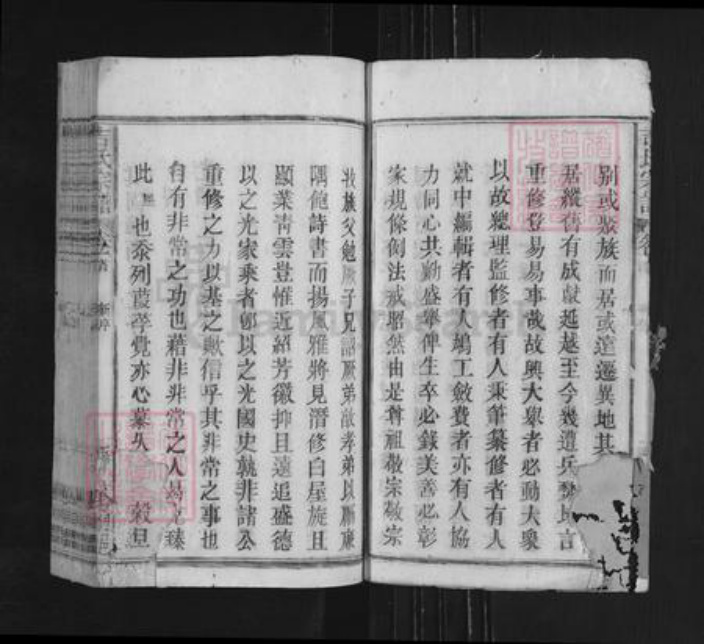 別或聚族而居或遠遷異地其
居縱舊有成獻延越至今幾遭兵燹其言
重修登易易事哉故興大舉者必動大衆
以故總理監修者有人秉筆纂修者有人
就中編輯者有人鳩工斂費者亦有人協
力同心共勷盛舉俾生卒必錄美善必彰
家規條例法戒昭然由是尊祖敬宗敬宗
收族父勉厥子兄詔厥弟敵孝弟以勵廉
隅飽詩書而揚風雅將見潛修白屋旋且
顯業青雲豈惟近紹芳徽抑且遠追盛德
以之光家乘者卽以之光國史孰非諸公
重修之力以基之歟信乎其非常之事也
自有非常之功也藉非非常之人曷克臻
此 也忝列葭莩覺亦心慕久 穀旦
吉氏宗譜